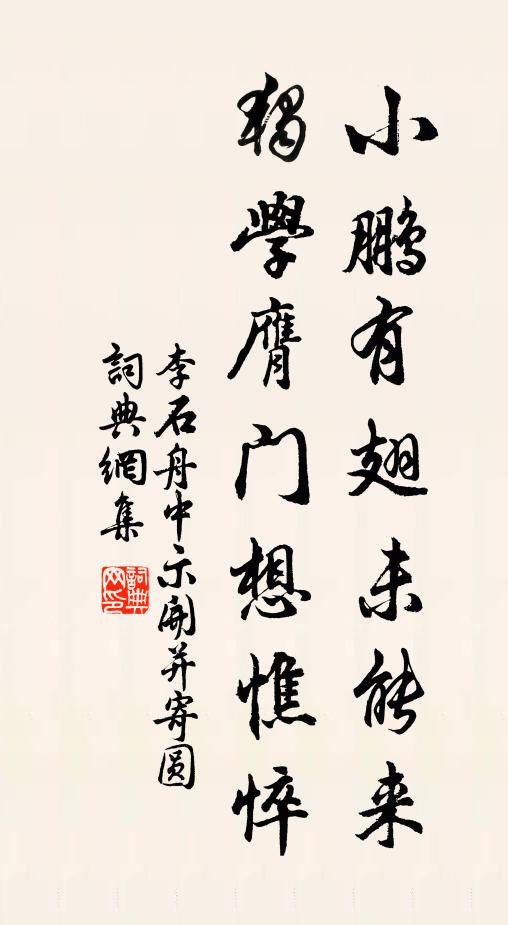 小鹏有翅未能来
獨學膺门想憔悴
李石舟中示開并寄圆
詞典網集
詞典网印